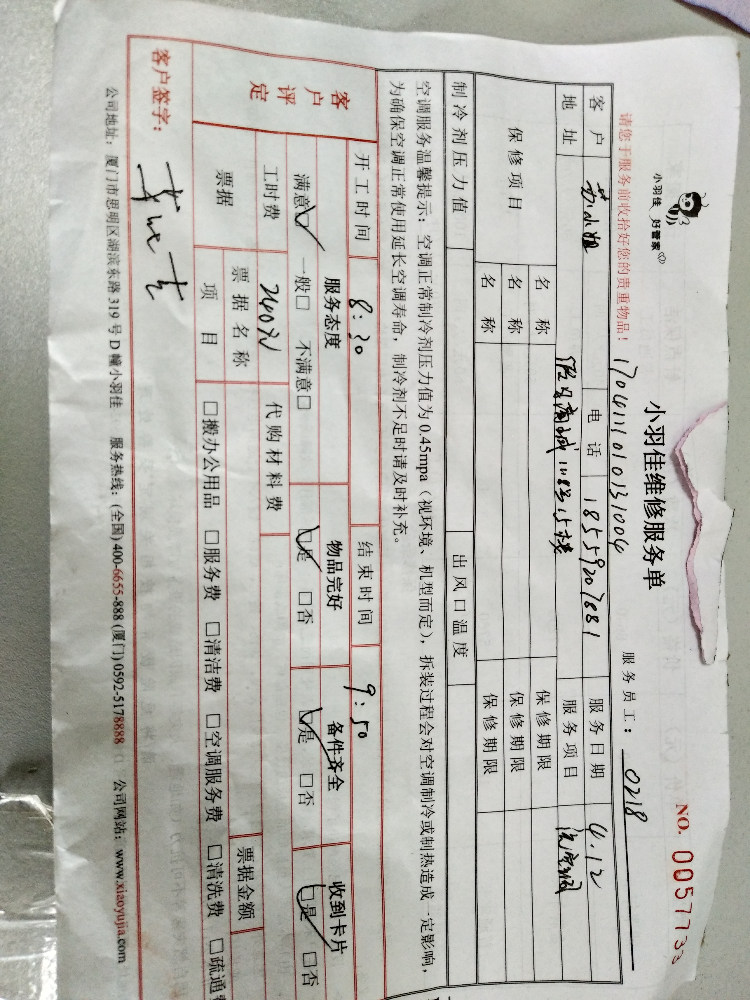 小羽佳 好管家
小羽佳维修服务单
NO. 0057733
请您于服务前收拾好您的贵重物品！
服务员工： 0218
客户 苏小姐 电话 18559207881 服务日期 4.12
地址 服务项目 洗空调
保修项目 名称 保修期限
名称 保修期限
名称 保修期限
制冷剂压力值 出风口温度
空调服务温馨提示：空调正常制冷剂压力值为0.45mpa（视环境、机型而定），拆装过程会对空调制冷或制热造成一定影响，
为确保空调正常使用延长空调寿命，制冷剂不足时请及时补充。
开工时间 8:20 结束时间 9:50
客户评定 服务态度 物品完好 备件齐全 收到卡片
满意☑ 一般□ 不满意□ ☑是 □否 ☑是 □否 ☑是 □否
工时费 240元 代购材料费
票据 票据名称 票据金额
项目 □搬办公用品 □服务费 □清洁费 □空调服务费 □清洗费 □疏通费
客户签字：
公司地址：厦门市思明区湖滨东路319号D幢小羽佳 服务热线：(全国)400-6655-888 (厦门)0592-5178888 公司网站：www.xiaoyujia.com